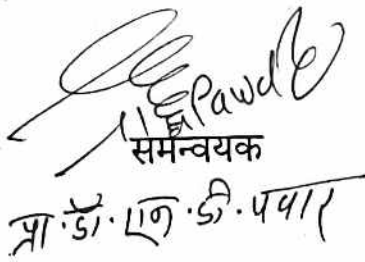 Pawar
समन्वयक
प्रा.डॉ.एन.डी.पवार